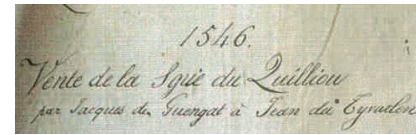 1546.
Vente de la Sgie du Quilliou
par Jacques de Guengat à Jean du Tyvarlen